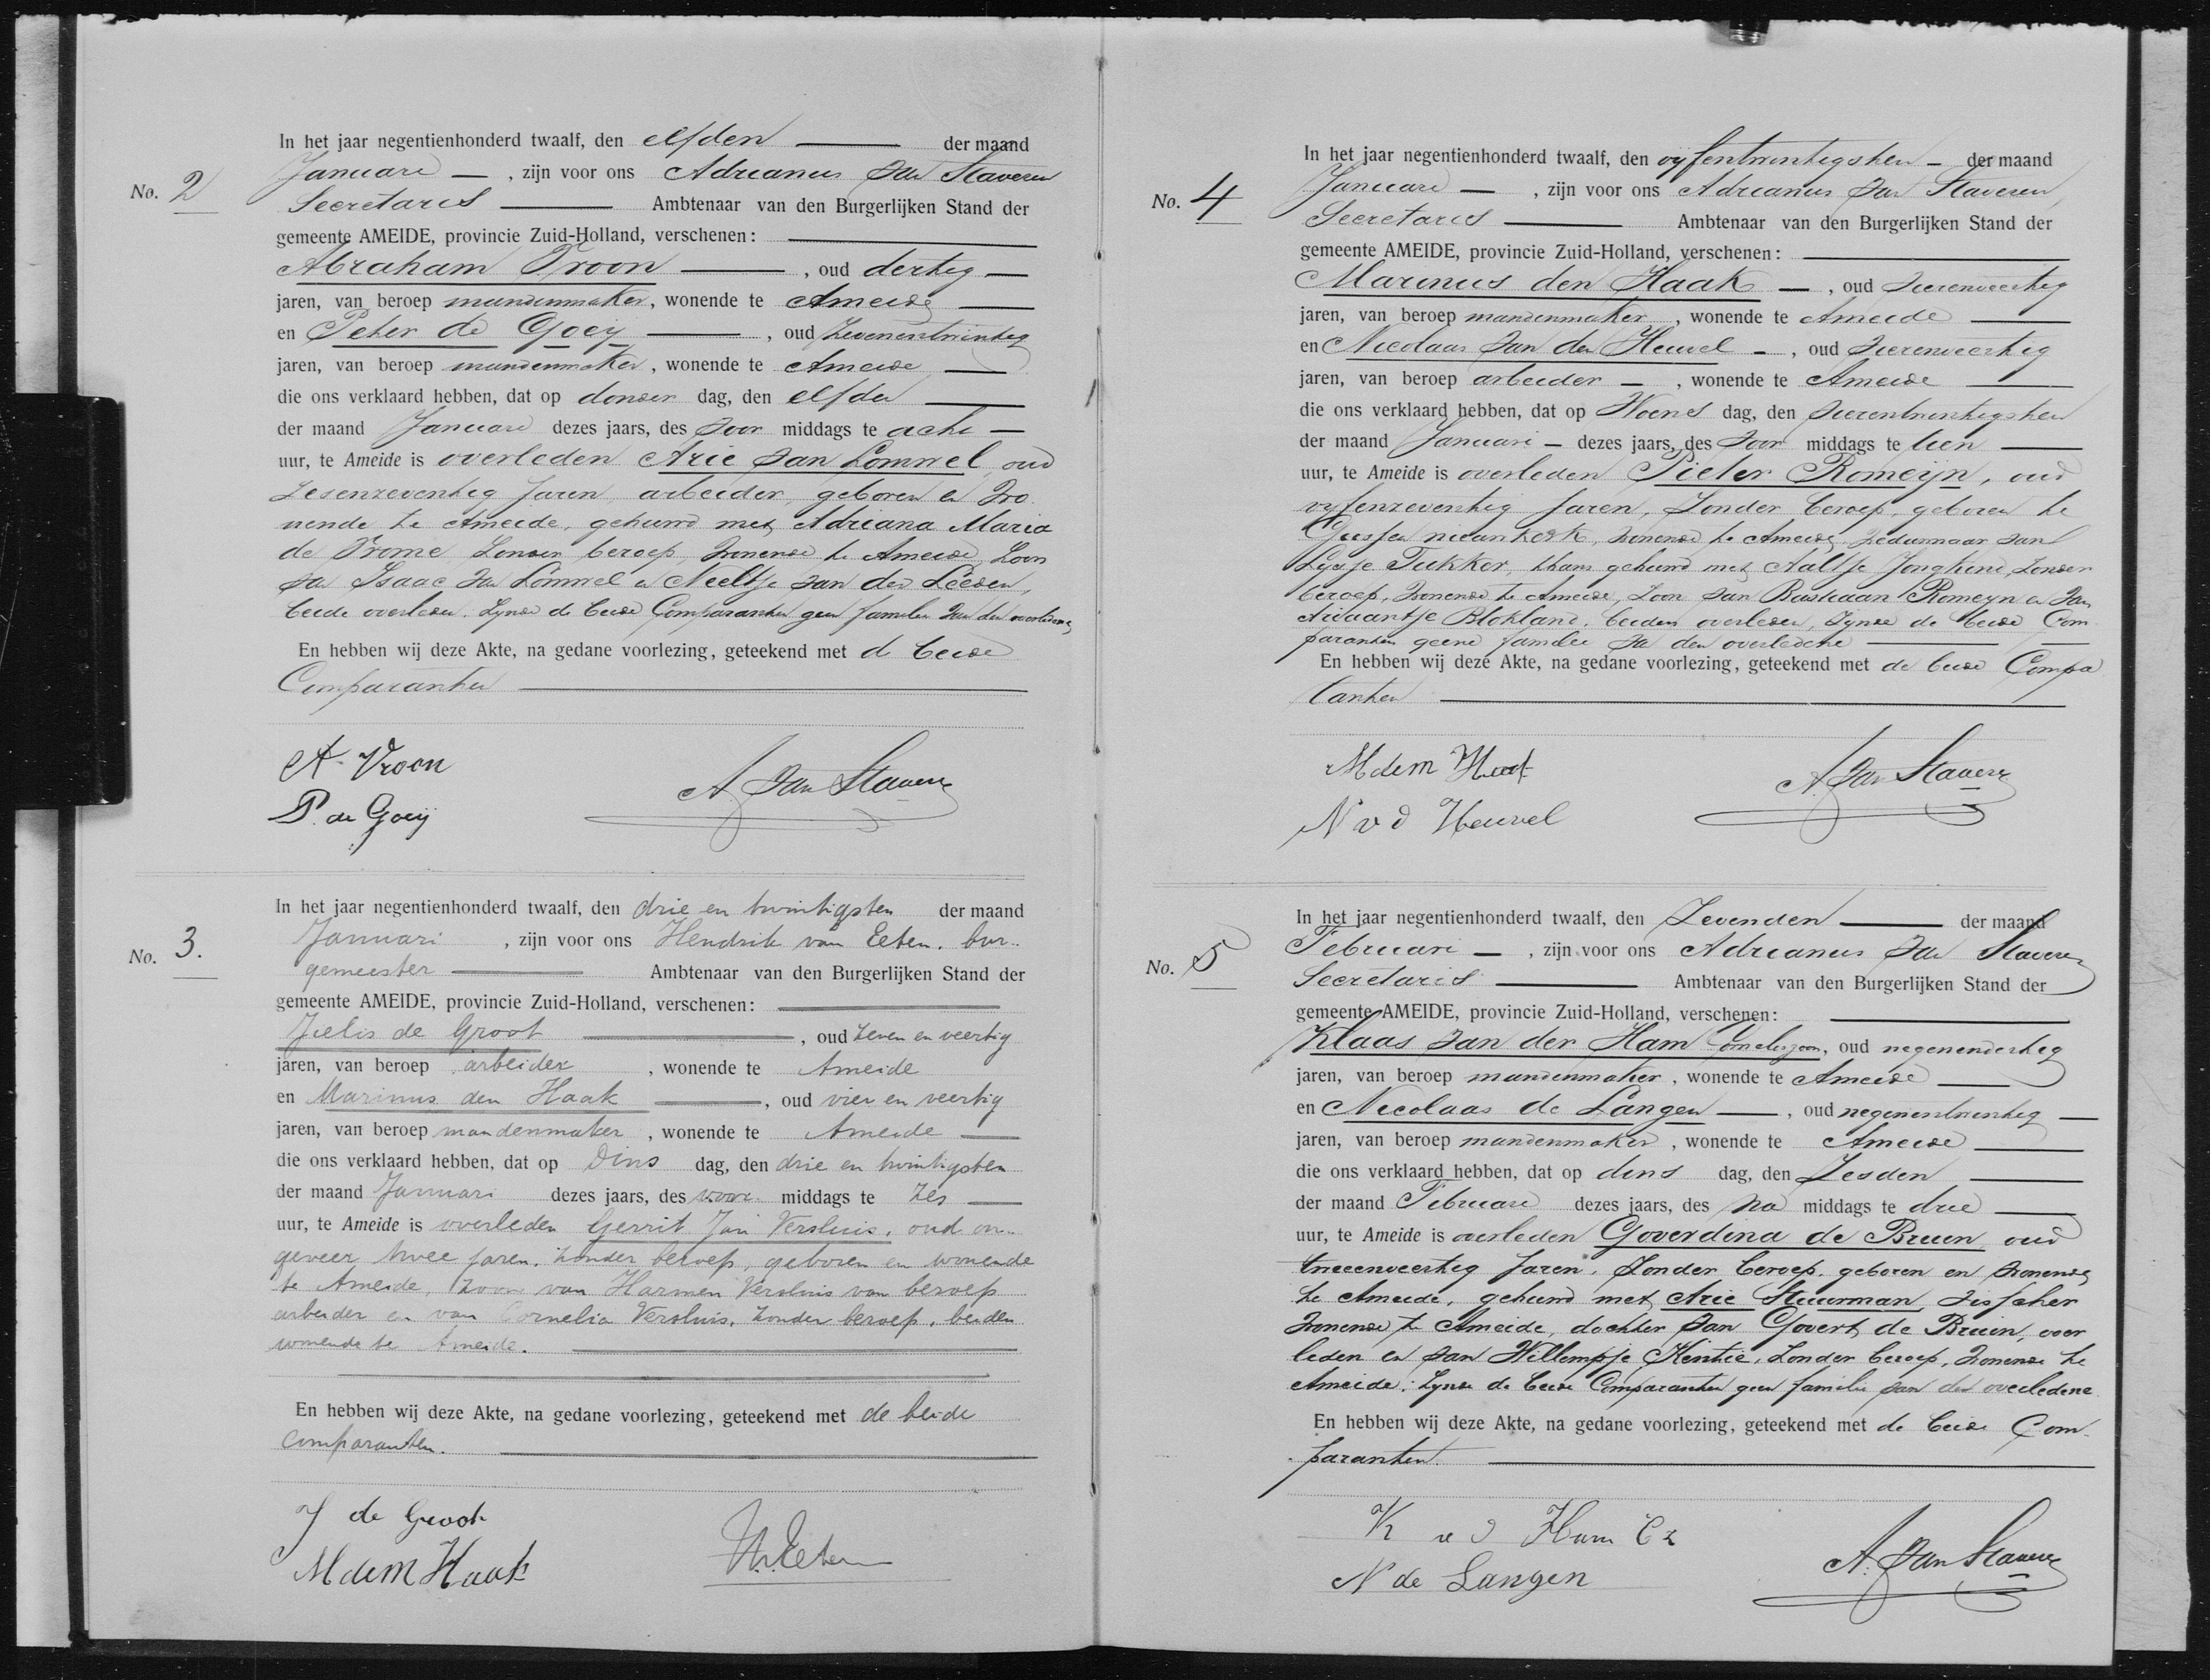 No. 2
In het jaar negentienhonderd twaalf, den elfden der maand
Januari , zijn voor ons Adrianus van Staveren
Secretaris Ambtenaar van den Burgerlijken Stand der
gemeente AMEIDE, provincie Zuid-Holland, verschenen:
Abraham Vroon , oud dertig
jaren, van beroep mandenmaker, wonende te Ameide
en Peter de Goeij , oud zevenentwintig
jaren, van beroep mandenmaker, wonende te Ameide
die ons verklaard hebben, dat op donder dag, den elfden
der maand Januari dezes jaars, des voor middags te acht
uur, te Ameide is overleden Arie van Lommel, oud
zesenzeventig jaren, arbeider, geboren en wo
nende te Ameide, gehuwd met Adriana Maria
de Vrome, zonder beroep, wonende te Ameide, zoon
van Isaac van Lommel en Neeltje van der Leeden,
beide overleden. Zijnde de beide Comparanten geen familie van den overledene
En hebben wij deze Akte, na gedane voorlezing, geteekend met de beide
Comparanten
A. Vroon
P. de Goeij
A van Staveren
No. 3.
In het jaar negentienhonderd twaalf, den drie en twintigsten der maand
Januari , zijn voor ons Hendrik van Eeten, bur-
gemeester Ambtenaar van den Burgerlijken Stand der
gemeente AMEIDE, provincie Zuid-Holland, verschenen:
Jielis de Groot , oud zeven en veertig
jaren, van beroep arbeider , wonende te Ameide
en Marinus den Haak , oud vier en veertig
jaren, van beroep mandenmaker , wonende te Ameide
die ons verklaard hebben, dat op Dins dag, den drie en twintigsten
der maand Januari dezes jaars, des voor middags te zes
uur, te Ameide is overleden Gerrit Jan Versluis, oud on-
geveer twee jaren, zonder beroep, geboren en wonende
te Ameide, zoon van Harmen Versluis van beroep
arbeider en van Cornelia Versluis, zonder beroep, beiden
wonende te Ameide.
En hebben wij deze Akte, na gedane voorlezing, geteekend met de beide
comparanten.
J de Groot
M den Haak
H.v.Eeten
No. 4
In het jaar negentienhonderd twaalf, den vijfentwintigsten der maand
Januari , zijn voor ons Adrianus van Staveren,
Secretaris Ambtenaar van den Burgerlijken Stand der
gemeente AMEIDE, provincie Zuid-Holland, verschenen:
Marinus den Haak , oud vierenveertig
jaren, van beroep mandenmaker , wonende te Ameide
en Nicolaas van den Heuvel , oud vierenveertig
jaren, van beroep arbeider , wonende te Ameide
die ons verklaard hebben, dat op Woens dag, den vierentwintigsten
der maand Januari dezes jaars, des voor middags te tien
uur, te Ameide is overleden Pieter Romeijn, oud
vijfenzeventig jaren, zonder beroep, geboren te
Giessen nieuwkerk, wonende te Ameide, weduwnaar van
Tukker, thans gehuwd met Aaltje Jongkind, zonder
beroep, wonende te Ameide, zoon van Bastiaan Romeyn en van
Adriaantje Blokland, beiden overleden, zijnde de beide Com
paranten geene familie van den overledene
En hebben wij deze Akte, na gedane voorlezing, geteekend met de beide Compa
ranten
M den Haak
N v d Heuvel
A. van Staveren
No. 5
In het jaar negentienhonderd twaalf, den Zevenden der maand
Februari , zijn voor ons Adrianus van Staveren
Secretaris Ambtenaar van den Burgerlijken Stand der
gemeente AMEIDE, provincie Zuid-Holland, verschenen:
Klaas van der Ham Corneliszoon, oud negenendertig
jaren, van beroep mandenmaker , wonende te Ameide
en Nicolaas de Langen , oud negenentwintig
jaren, van beroep mandenmaker , wonende te Ameide
die ons verklaard hebben, dat op dins dag, den Zesden
der maand Februari dezes jaars, des na middags te drie
uur, te Ameide is overleden Goverdina de Bruin, oud
tweeenveertig jaren, zonder beroep, geboren en wonende
te Ameide, gehuwd met Arie Stuurman, visscher
wonende te Ameide, dochter van Govert de Bruin, over
leden en van Willempje Kentie, zonder beroep, wonende te
Ameide. Zijnde de beide Comparanten geen familie van den overledene
En hebben wij deze Akte, na gedane voorlezing, geteekend met de beide Com-
paranten.
K v d Ham Cz
N de Langen
A. van Staveren